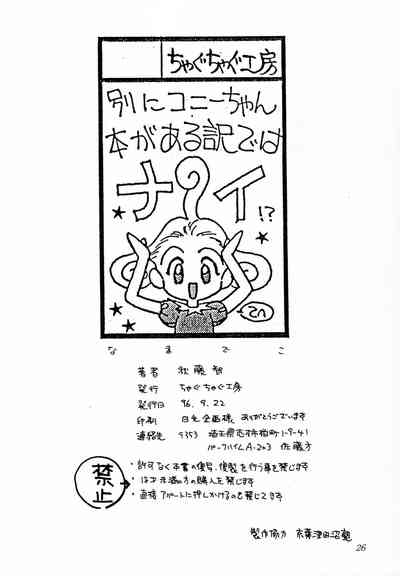 ちゃぐちゃぐ工房
別にコニーちゃん
本がある訳では
ナイ!?
てへ
なまでこ
著者 秋藤 智
発行 ちゃぐちゃぐ工房
発行日 '96.9.22
印刷 日光企画様、ありがとうございます
連絡先 〒353 埼玉県志木市柏町1-9-41
パークハイムA-203 佐藤方
禁止
・許可なく本書の複写、複製を行う事を禁じます
・は 才未満の方の購入を禁じます
・直接アパートに押しかけるのも禁じてます
製作協力 京葉津田沼塾
26